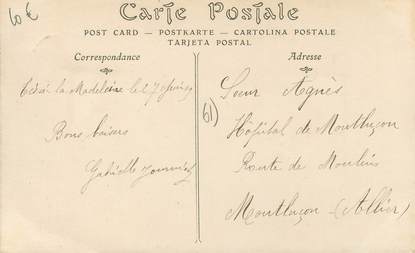 10 €
Carte Postale
POST CARD — POSTKARTE — CARTOLINA POSTALE
TARJETA POSTAL
Correspondance
la Madeleine le 27
Bons baisers
Gabrielle
Adresse
61)
Soeur Agnès
Hôpital de Montluçon
Route de Moulins
Montluçon (Allier)